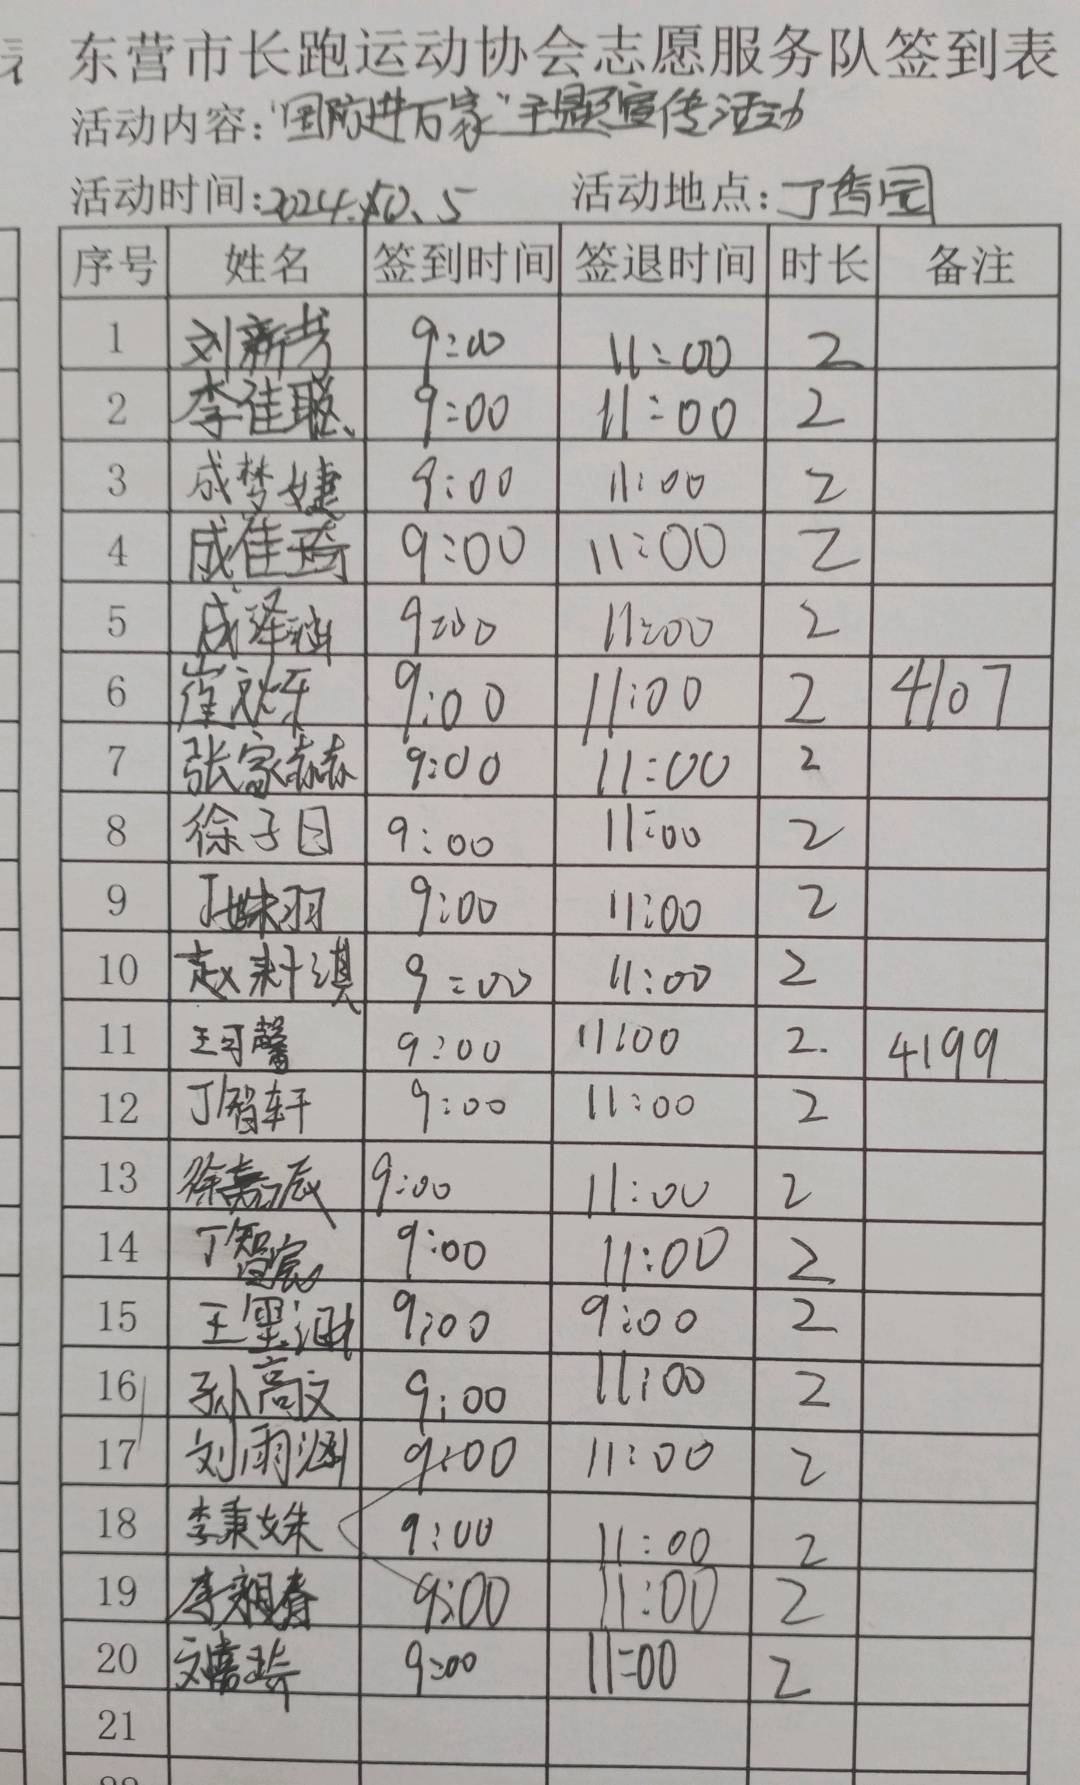 东营市长跑运动协会志愿服务队签到表
活动内容:"国防进万家"主题宣传活动
活动时间:2024.10.5 活动地点:丁香园
序号 姓名 签到时间 签退时间 时长 备注
1 刘新芳 9:00 11:00 2
2 李佳聪 9:00 11:00 2
3 成梦婕 9:00 11:00 2
4 成佳琦 9:00 11:00 2
5 成泽 9:00 11:00 2
6 崔文烁 9:00 11:00 2 4107
7 张家赫 9:00 11:00 2
8 徐子目 9:00 11:00 2
9 丁姝羽 9:00 11:00 2
10 赵淇 9:00 11:00 2
11 王可馨 9:00 11:00 2. 4199
12 丁智轩 9:00 11:00 2
13 徐嘉辰 9:00 11:00 2
14 丁智宸 9:00 11:00 2
15 王墨涵 9:00 9:00 2
16 孙高文 9:00 11:00 2
17 刘雨涵 9:00 11:00 2
18 李秉姝 9:00 11:00 2
19 李春 9:00 11:00 2
20 9:00 11:00 2
21